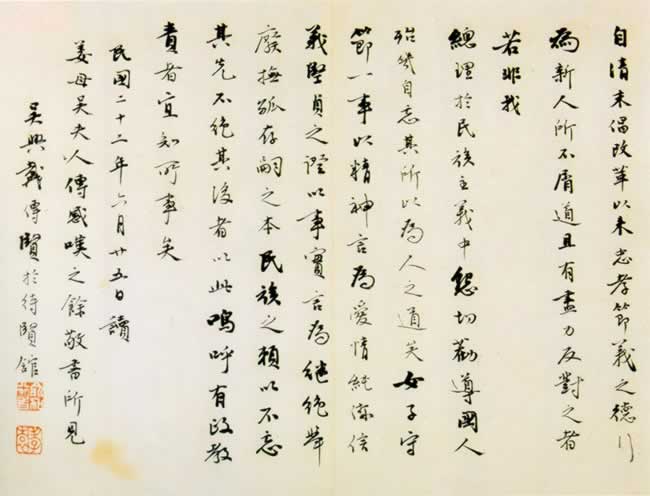 自清末倡改革以來忠孝節義之德行
為新人所不屑道且有盡力反對之者
若非我
總理於民族主義中懇切勸導國人
殆幾自忘其所以為人之道矣女子守
節一事以精神言為愛情純潔信
義堅貞之證以事實言為繼絕舉
廢撫孤存嗣之本民族之賴以不忘
其先不絕其後者以此嗚呼有政教
責者宜知所事矣
民國二十二年六月廿五日讀
姜母吳夫人傳感嘆之餘敬書所見
吳興戴傳賢於待賢館